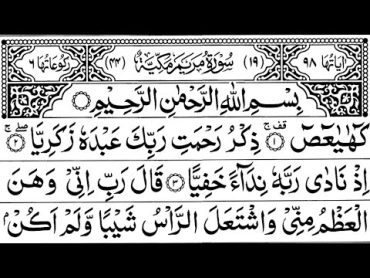 اٰيَاتُهَا ٩٨ (١٩) سُوْرَةُ مَرْيَمَ مَكِّيَّةٌ (٤٤) رُكُوْعَاتُهَا ٦
بِسْمِ اللّٰهِ الرَّحْمٰنِ الرَّحِيْمِ
كٓهٰيٰعٓصٓ ۚ ۝١ ذِكْرُ رَحْمَتِ رَبِّكَ عَبْدَهٗ زَكَرِيَّا ۝٢
اِذْ نَادٰى رَبَّهٗ نِدَآءً خَفِيًّا ۝٣ قَالَ رَبِّ اِنِّىْ وَهَنَ
الْعَظْمُ مِنِّىْ وَاشْتَعَلَ الرَّاْسُ شَيْبًا وَّلَمْ اَكُنْۢ